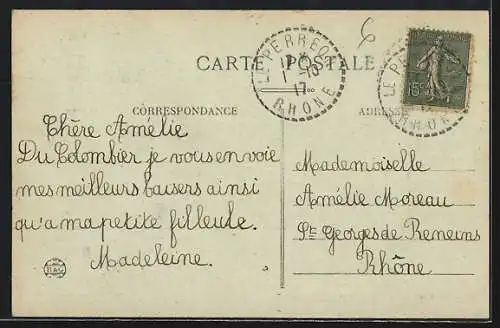 CARTE POSTALE
LE PERRÉON
1 -10
17
RHÔNE
15c
CORRESPONDANCE
ADRESSE
Chère Amélie
Du Colombier je vous envoie
mes meilleurs baisers ainsi
qu'a ma petite filleule.
Madeleine.
Mademoiselle
Amélie Moreau
St Georges de Reneins
Rhône